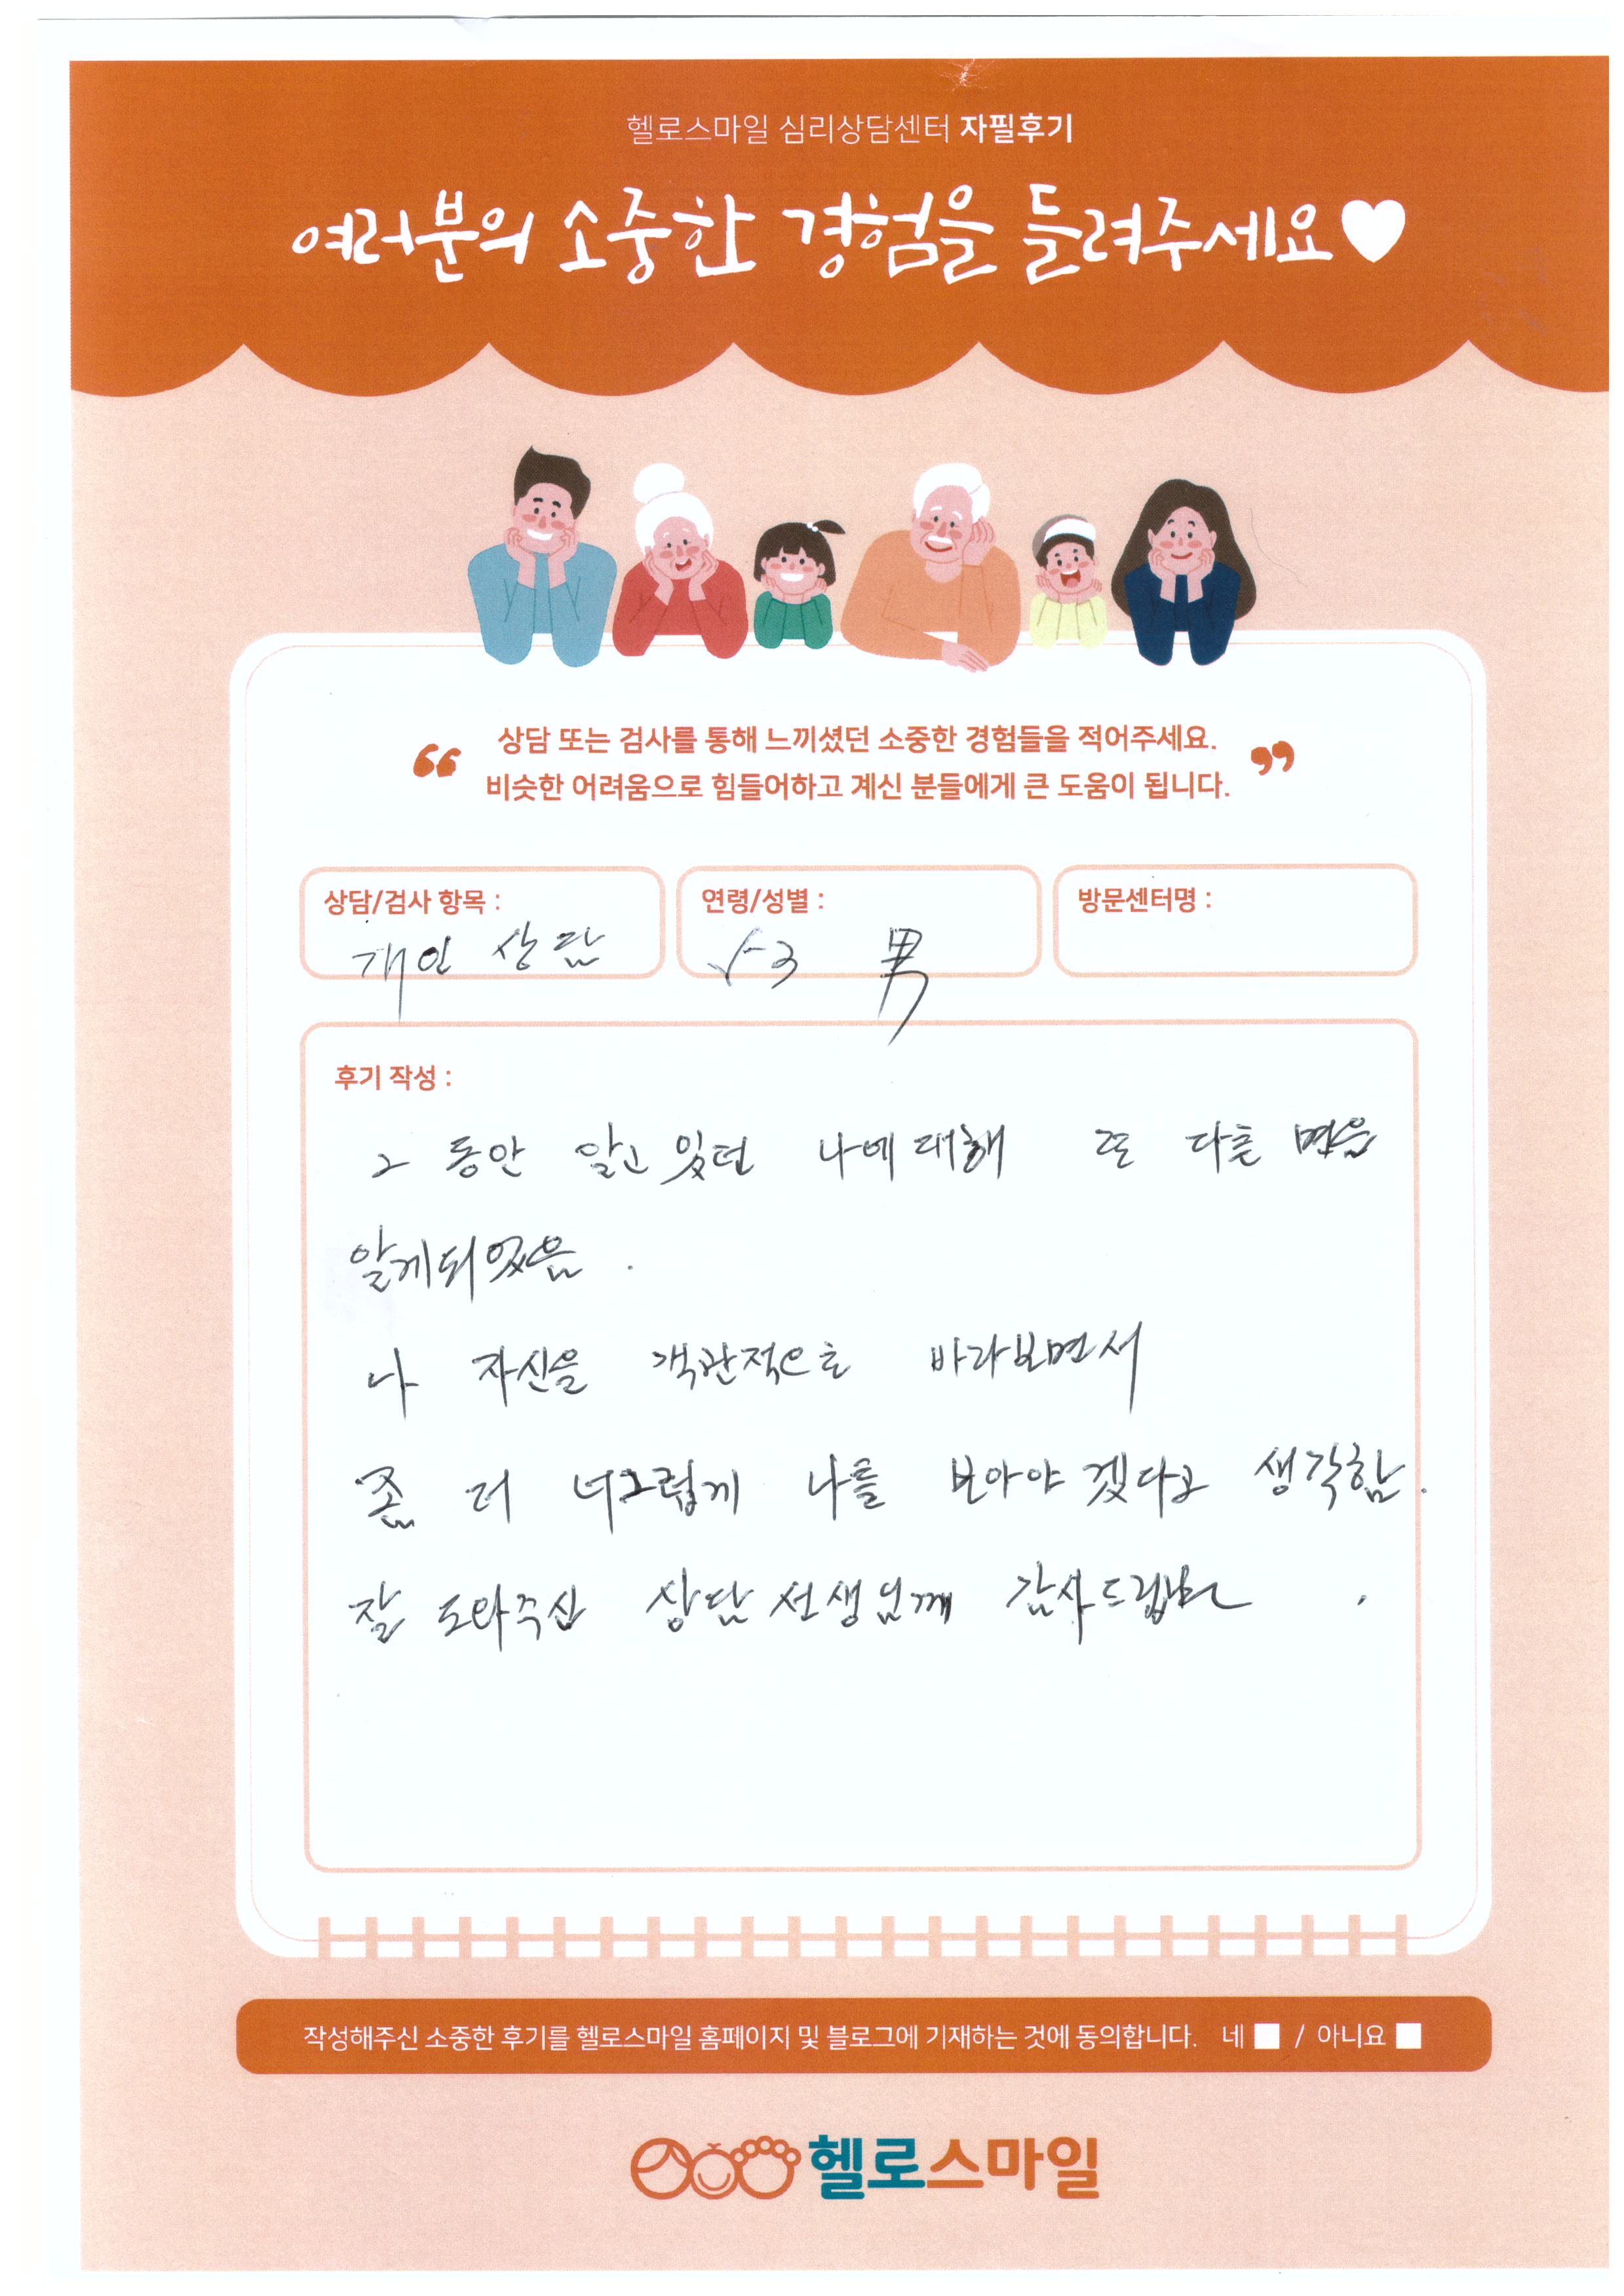 헬로스마일 심리상담센터 자필후기
여러분의 소중한 경험을 들려주세요
상담 또는 검사를 통해 느끼셨던 소중한 경험들을 적어주세요.
비슷한 어려움으로 힘들어하고 계신 분들에게 큰 도움이 됩니다.
상담/검사 항목 :
개인 상담
연령/성별 :
53 男
방문센터명 :
후기 작성 :
그 동안 알고 있던 나에 대해 또 다른 면을
알게되었음.
나 자신을 객관적으로 바라보면서
좀 더 너그럽게 나를 보아야 겠다고 생각함.
잘 도와주신 상담 선생님께 감사드립니다.
작성해주신 소중한 후기를 헬로스마일 홈페이지 및 블로그에 기재하는 것에 동의합니다. 네 / 아니요
헬로스마일